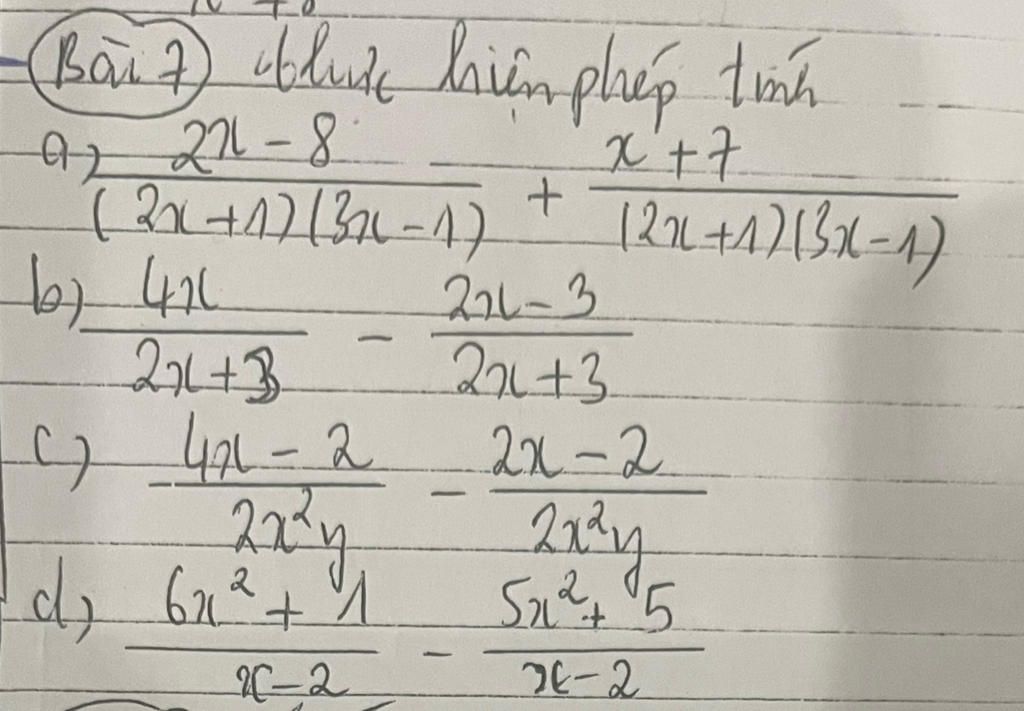 Bài 7 Thực hiện phép tính
a) (2x - 8)/((2x+1)(3x-1)) + (x+7)/((2x+1)(3x-1))
b) (4x)/(2x+3) - (2x-3)/(2x+3)
c) (4x-2)/(2x²y) - (2x-2)/(2x²y)
d) (6x²+1)/(x-2) - (5x²+5)/(x-2)